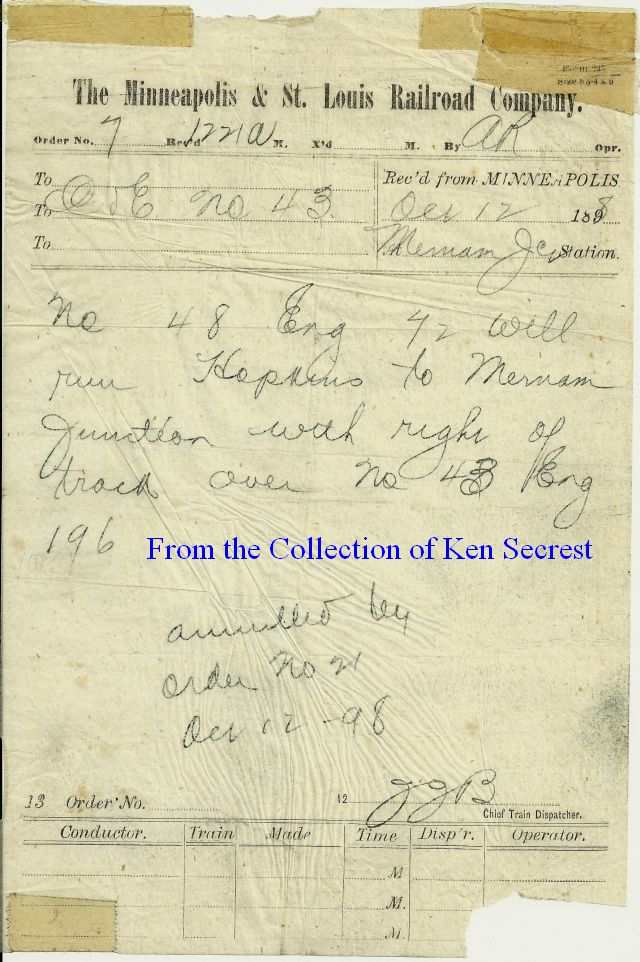 Form 245
Size 6 3-4 x 9
The Minneapolis & St. Louis Railroad Company.
Order No. 7 Rec'd 1221 a M. X'd M. By AR Opr.
To
To C & E No 43
To
Rec'd from MINNEAPOLIS
Oct 12 1898
Merriam Jct Station.
No 48 Eng 42 will
run Hopkins to Merriam
Junction with right of
track over No 43 Eng
196
From the Collection of Ken Secrest
annulled by
order No 21
Oct 12 - 98
13 Order No. 12 JJB
Chief Train Dispatcher.
Conductor. Train Made Time Disp'r. Operator.
M
M.
M.